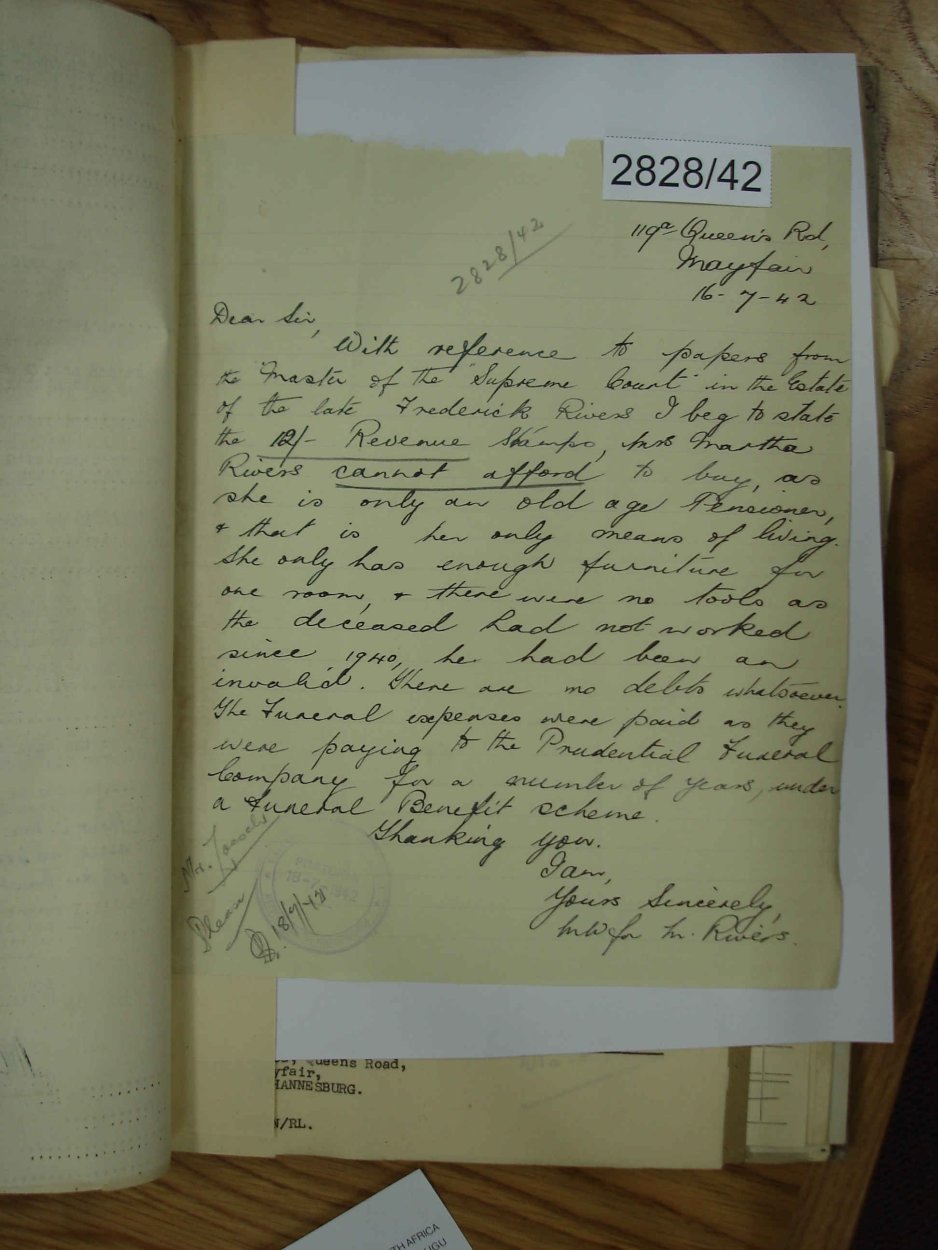 2828/42
2828/42
119a Queen's Rd,
Mayfair
16-7-42
Dear Sir,
With reference to papers from
the Master of the "Supreme Court" in the Estate
of the late Frederick Rivers I beg to state
the 12/- Revenue Stamps, Mrs Martha
Rivers cannot afford to buy, as
she is only an old age Pensioner,
& that is her only means of living.
She only has enough furniture for
one room, & there were no tools as
the deceased had not worked
since 1940, he had been an
invalid. There are no debts whatsoever.
The Funeral expenses were paid as they
were paying to the Prudential Funeral
Company for a number of years, under
a Funeral Benefit scheme.
Thanking you.
I am,
Yours Sincerely,
for M. Rivers.
Mr.
Please
18/7/42
PRETORIA
1942
Queens Road,
yfair,
HANNESBURG.
/RL.
TH AFRICA
UGU